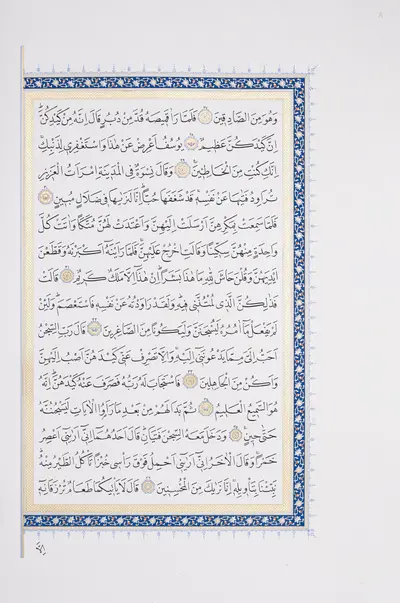 وَهُوَ مِنَ الصَّادِقِينَ فَلَمَّا رَاٰ قَمِيصَهُ قُدَّ مِنْ دُبُرٍ قَالَ اِنَّهُ مِنْ كَيْدِكُنَّ
اِنَّ كَيْدَكُنَّ عَظِيمٌ يُوسُفُ اَعْرِضْ عَنْ هٰذَا وَاسْتَغْفِرِي لِذَنْبِكِ
اِنَّكِ كُنْتِ مِنَ الْخَاطِئِينَ وَقَالَ نِسْوَةٌ فِي الْمَدِينَةِ امْرَاَتُ الْعَزِيزِ
تُرَاوِدُ فَتٰيهَا عَنْ نَفْسِهِ قَدْ شَغَفَهَا حُبًّا اِنَّا لَنَرٰيهَا فِي ضَلَالٍ مُبِينٍ
فَلَمَّا سَمِعَتْ بِمَكْرِهِنَّ اَرْسَلَتْ اِلَيْهِنَّ وَاَعْتَدَتْ لَهُنَّ مُتَّكَـًٔا وَاٰتَتْ كُلَّ
وَاحِدَةٍ مِنْهُنَّ سِكِّينًا وَقَالَتِ اخْرُجْ عَلَيْهِنَّ فَلَمَّا رَاَيْنَهُ اَكْبَرْنَهُ وَقَطَّعْنَ
اَيْدِيَهُنَّ وَقُلْنَ حَاشَ لِلّٰهِ مَا هٰذَا بَشَرًا اِنْ هٰذَا اِلَّا مَلَكٌ كَرِيمٌ قَالَتْ
فَذٰلِكُنَّ الَّذِي لُمْتُنَّنِي فِيهِ وَلَقَدْ رَاوَدْتُهُ عَنْ نَفْسِهِ فَاسْتَعْصَمَ وَلَئِنْ
لَمْ يَفْعَلْ مَا اٰمُرُهُ لَيُسْجَنَنَّ وَلَيَكُونًا مِنَ الصَّاغِرِينَ قَالَ رَبِّ السِّجْنُ
اَحَبُّ اِلَيَّ مِمَّا يَدْعُونَنِي اِلَيْهِ وَاِلَّا تَصْرِفْ عَنِّي كَيْدَهُنَّ اَصْبُ اِلَيْهِنَّ
وَاَكُنْ مِنَ الْجَاهِلِينَ فَاسْتَجَابَ لَهُ رَبُّهُ فَصَرَفَ عَنْهُ كَيْدَهُنَّ اِنَّهُ
هُوَ السَّمِيعُ الْعَلِيمُ ثُمَّ بَدَا لَهُمْ مِنْ بَعْدِ مَا رَاَوُا الْاٰيَاتِ لَيَسْجُنُنَّهُ
حَتّٰى حِينٍ وَدَخَلَ مَعَهُ السِّجْنَ فَتَيَانِ قَالَ اَحَدُهُمَا اِنِّي اَرٰينِي اَعْصِرُ
خَمْرًا وَقَالَ الْاٰخَرُ اِنِّي اَرٰينِي اَحْمِلُ فَوْقَ رَاْسِي خُبْزًا تَاْكُلُ الطَّيْرُ مِنْهُ
نَبِّئْنَا بِتَاْوِيلِهِ اِنَّا نَرٰيكَ مِنَ الْمُحْسِنِينَ قَالَ لَا يَاْتِيكُمَا طَعَامٌ تُرْزَقَانِهِ